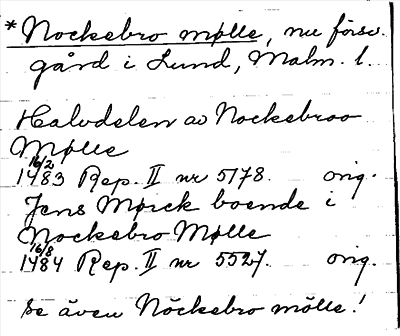 *Nockebro mølle, nu försv.
gård i Lund, Malm. l.
Halvdelen av Nockebroo
Mølle
16/2
1483 Rep. II nr 5178. orig.
Jens Mørck boende i
Nockebro Mølle
16/8
1484 Rep. II nr 5527. orig.
se även Nöckebro mölle!